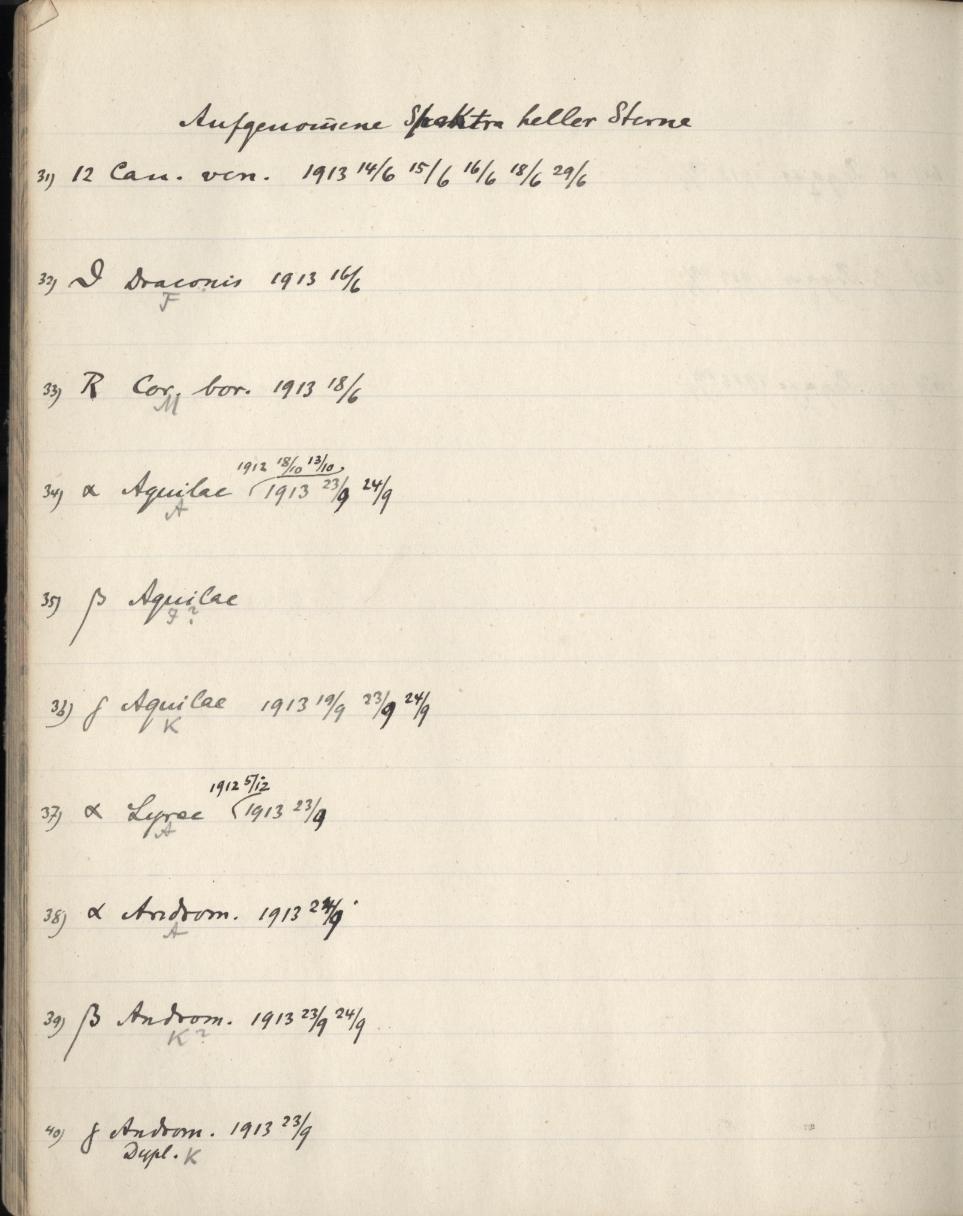 Aufgenom̄ene Spektra heller Sterne
31) 12 Can. ven. 1913 14/6 15/6 16/6 18/6 29/6
32) ϑ Draconis 1913 16/6
F
33) R Cor. bor. 1913 18/6
M
1912 18/10 13/10
34) α Aquilae 1913 23/9 24/9
A
35) β Aquilae
F ?
36) γ Aquilae 1913 19/9 23/9 24/9
K
1912 5/12
37) α Lyrae 1913 23/9
A
38) α Androm. 1913 24/9
A
39) β Androm. 1913 23/9 24/9
K ?
40) γ Androm. 1913 23/9
Dupl. K